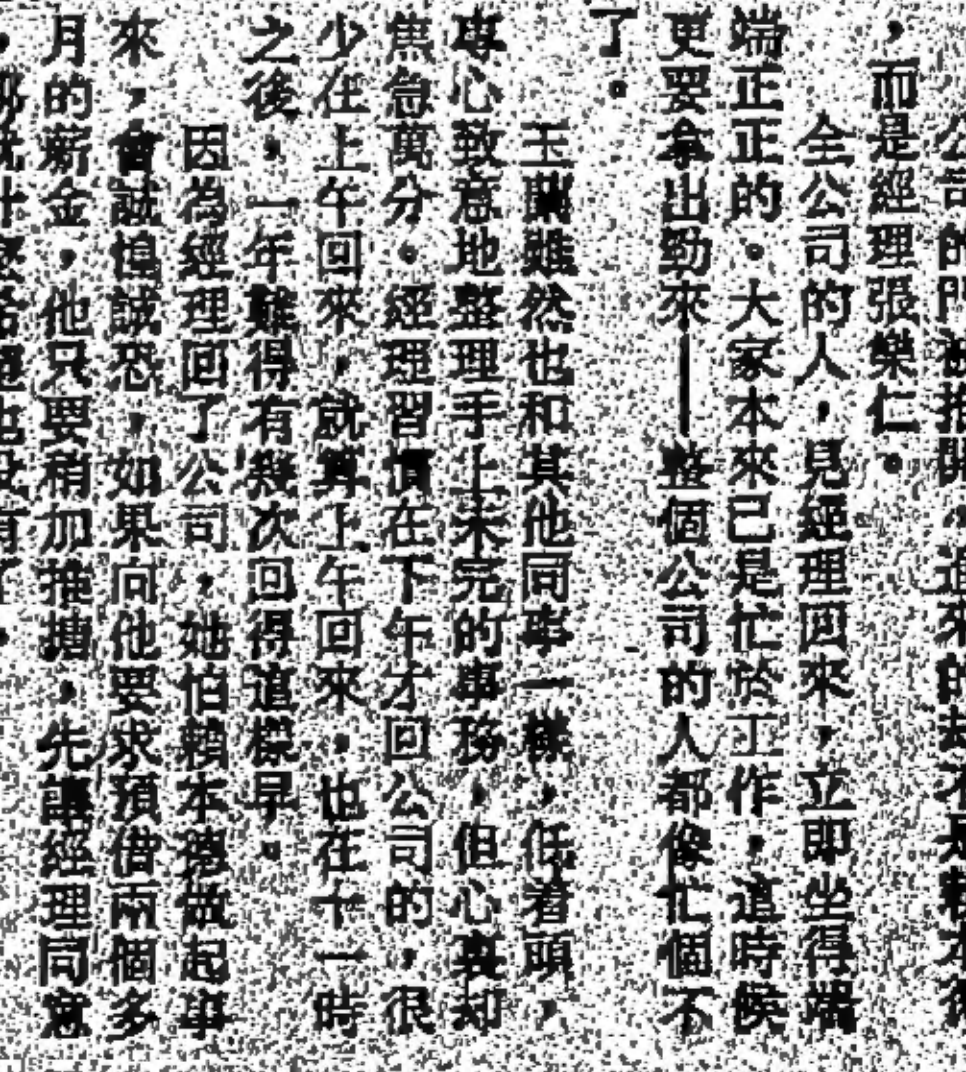 公司的門被推開，進來的却不是賴本德
，而是經理張樂仁。
全公司的人，見經理回來，立即坐得端
端正正的。大家本來已是忙於工作，這時候
更要拿出勁來——整個公司的人都像忙個不
了。
玉蘭雖然也和其他同事一樣，低着頭，
專心致意地整理手上未完的事務，但心裏却
焦急萬分。經理習慣在下午才回公司的，很
少在上午回來，就算上午回來，也在十一時
之後，一年難得有幾次回得這樣早。
因為經理回了公司，她怕賴本德做起事
來，會誠惶誠恐，如果向他要求預借兩個多
月的薪金，他只要稍加推搪，先讓經理同意